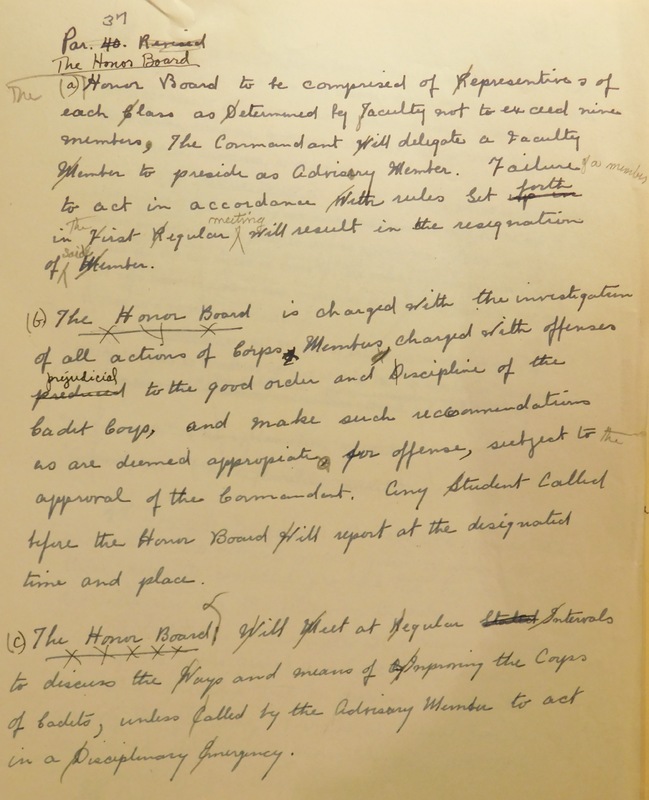 37
Par. 40. Revised
The Honor Board
The (a) Honor Board to be comprised of Representives of
each Class as Determined by faculty not to exceed nine
members, The Commandant Will delegate a Faculty
Member to preside as Advisory Member. Failure of a member
to act in accordance With rules Set up in forth
in The First Regular meeting will result in the resignation
of said Member.
(b) The Honor Board is charged with the investigation
of all actions of Corps Members, charged with offenses
produced prejudicial to the good order and Discipline of the
Cadet Corp, and make such reccomendations
as are deemed appropiate for offense, subject to the
approval of the Commandant. Any Student Called
before the Honor Board Will report at the designated
time and place.
(c) The Honor Board Will Meet at Regular Stated Intervals
to discuss the Ways and means of Improving the Corps
of Cadets, unless Called by the Advisory Member to act
in a Disciplinary Emergency.